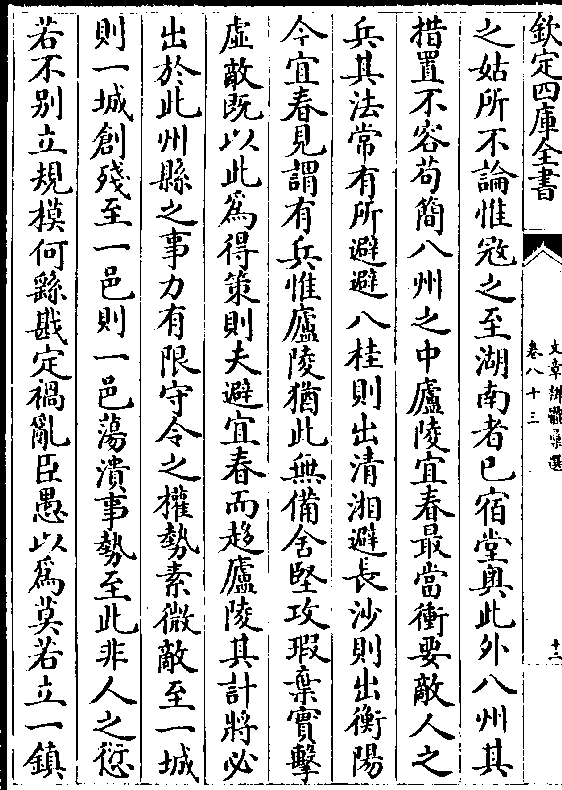 欽定四庫全書
文章辨體彙選
卷八十三
十二
之姑所不論惟冦之至湖南者已宿堂奥此外八州其
措置不容苟簡八州之中廬陵宜春最當衝要敵人之
兵其法常有所避避八桂則出清湘避長沙則出衡陽
今宜春見謂有兵惟廬陵猶此無備舍堅攻瑕棄實擊
虚敵既以此為得策則夫避宜春而趍廬陵其計將必
出於此州縣之事力有限守令之權勢素微敵至一城
則一城創殘至一邑則一邑蕩潰事勢至此非人之愆
若不别立規模何繇戡定禍亂臣愚以為莫若立一鎮